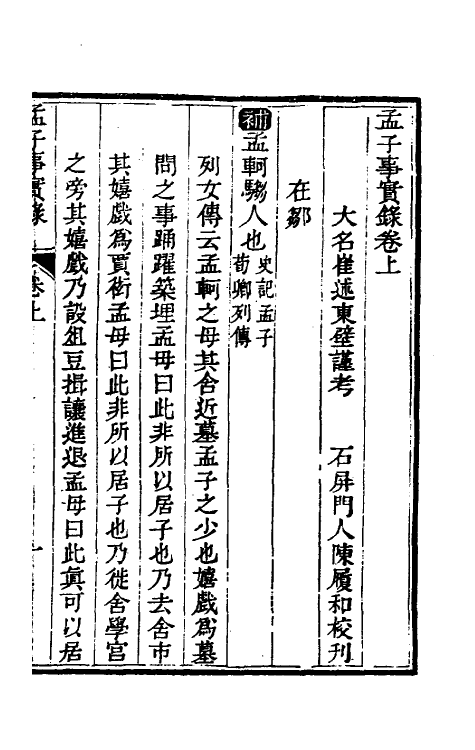 孟子事實錄卷上
大名崔述東壁謹考 石屏門人陳履和校刊
在鄒
補孟軻騶人也史記孟子
荀卿列傳
列女傳云孟軻之母其舍近墓孟子之少也嬉戲為墓
間之事踊躍築埋孟母曰此非所以居子也乃去舍市
其嬉戲為賈衒孟母曰此非所以居子也乃徙舍學宮
之旁其嬉戲乃設俎豆揖讓進退孟母曰此眞可以居
孟子事實錄 卷上